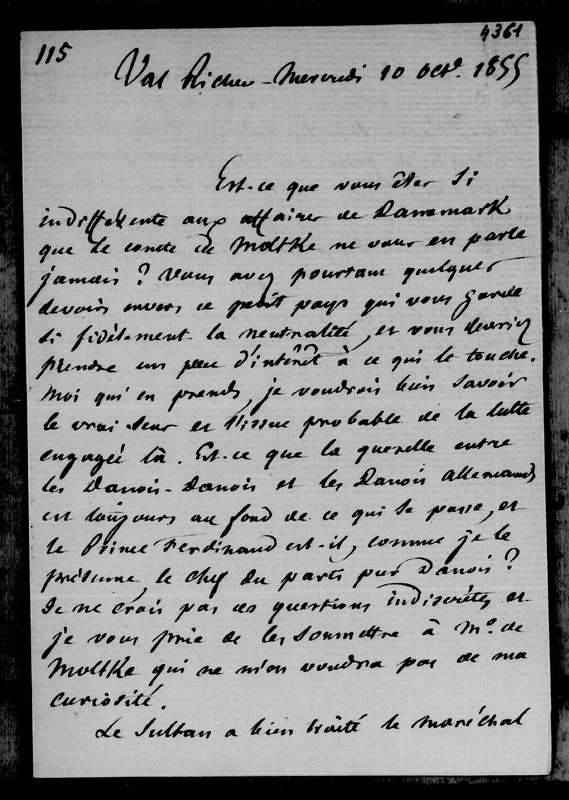 115
4361
Val Richer - Mercredi 10 Oct.e 1855
Est-ce que vous êtes si
indifférente aux affaires de Dannemark
que le comte de Moltke ne vous en parle
jamais ? Vous avez pourtant quelques
devoirs envers ce petit pays qui vous garde
si fidèlement la neutralité, et vous devriez
prendre un peu d'intérêt à ce qui le touche.
Moi qui en prends, je voudrais bien savoir
le vrai sens et l'issue probable de la lutte
engagée là. Est-ce que la querelle entre
les Danois-Danois et les Danois allemands
est toujours au fond de ce qui se passe, et
le Prince Ferdinand est-il, comme je le
présume, le chef du parti pur Danois ?
Je ne crois pas ces questions indiscrètes et
je vous prie de les soumettre à Mr. de
Moltke qui ne m'en voudra pas de ma
curiosité.
Le Sultan a bien traité le maréchal